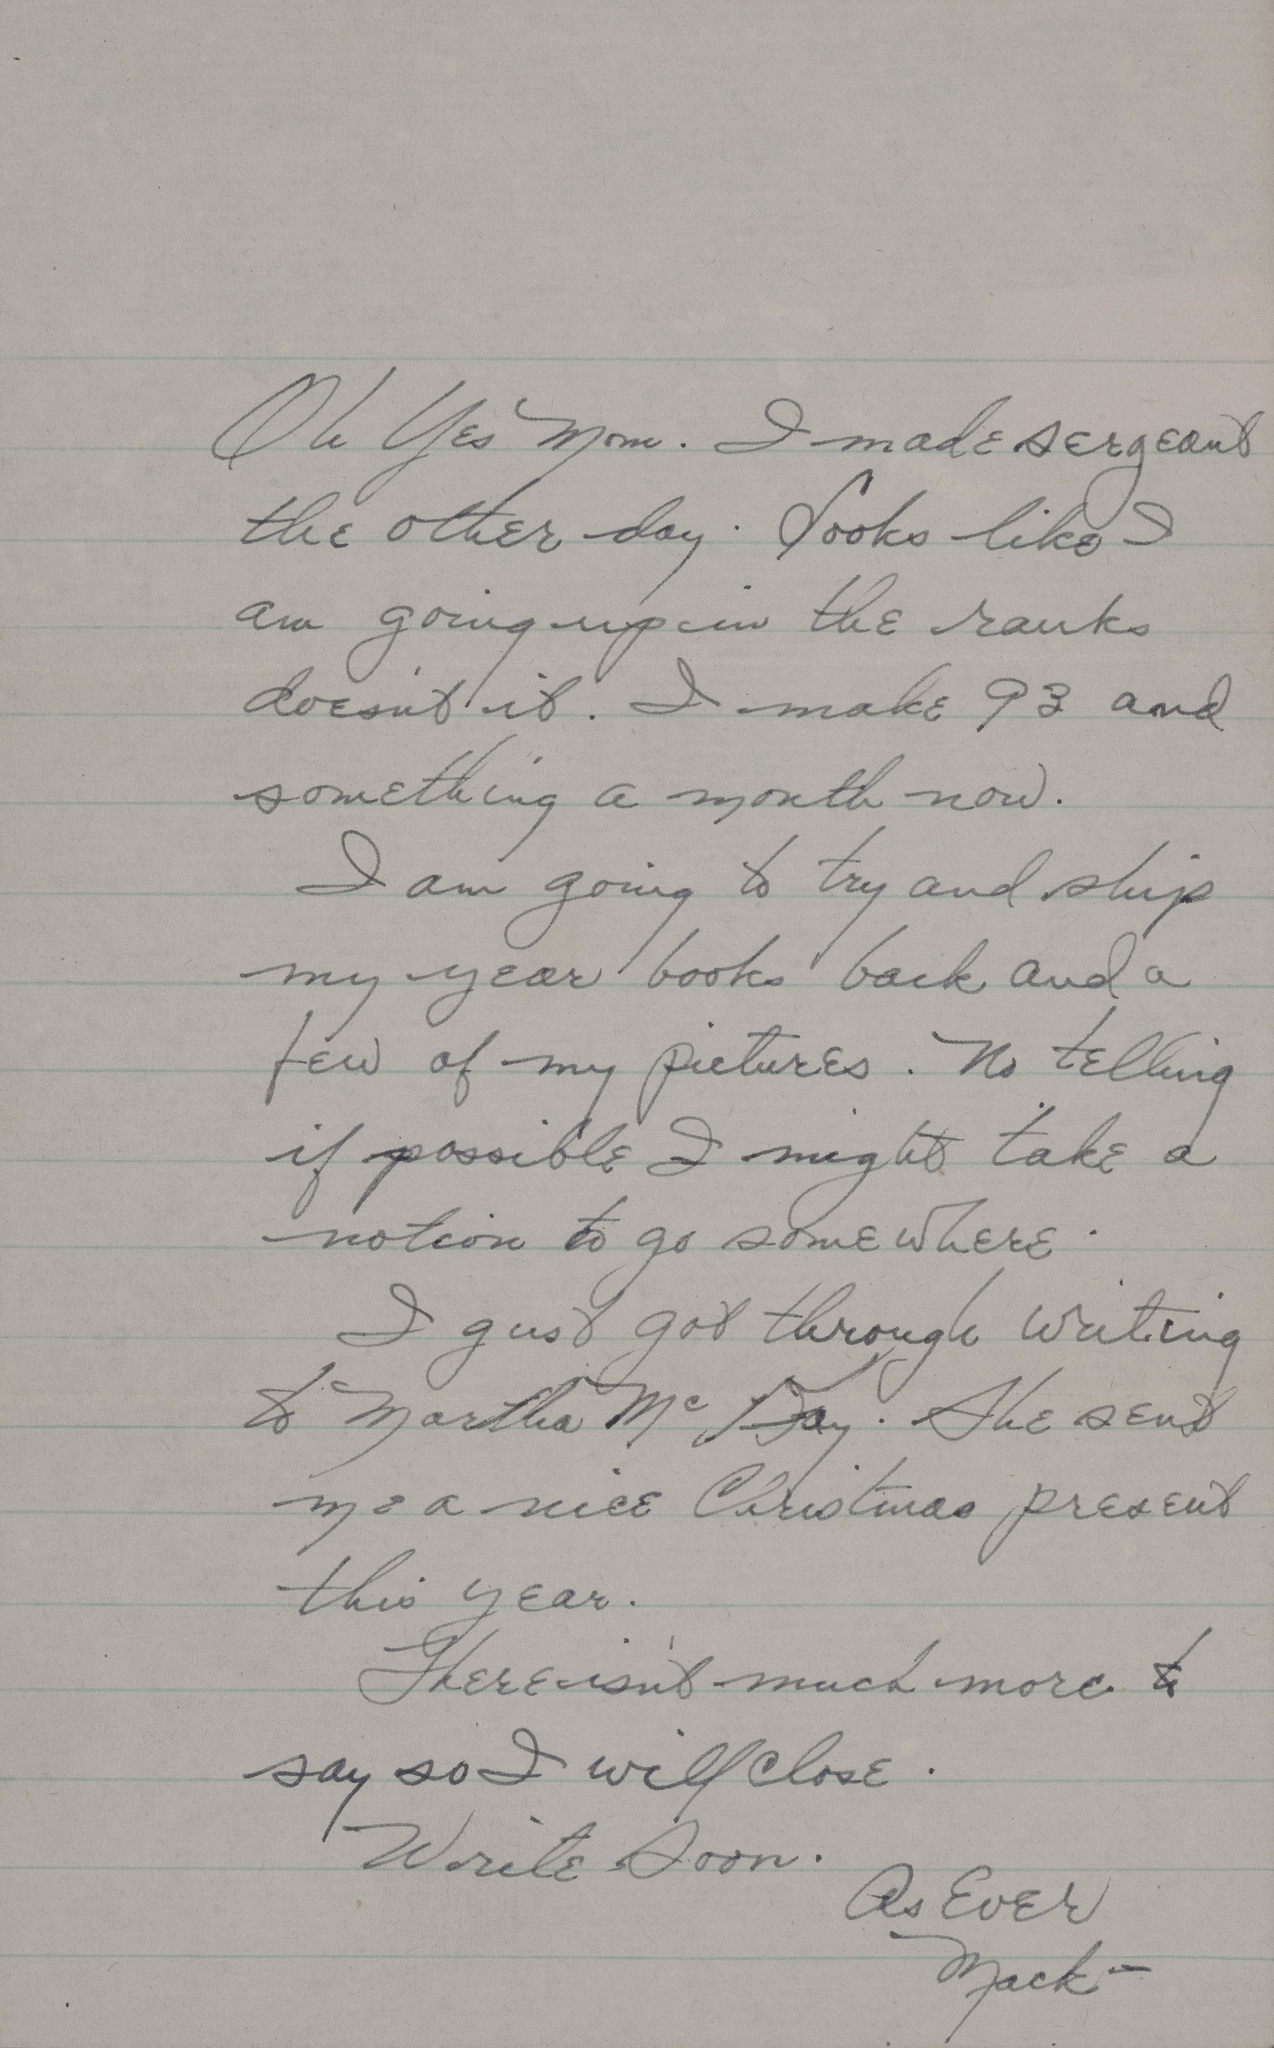 Oh Yes Mom. I made sergeant
the other day. Looks like I
am going up in the ranks
doesn't it. I make 93 and
something a month now.
I am going to try and ship
my year books back and a
few of my pictures. No telling
if possible I might take a
notion to go somewhere.
I gust got through writing
to Martha Mc
She sent
me a nice Christmas present
this year.
There isn't much more to
say so I will close.
Write Soon.
As Ever
Mack